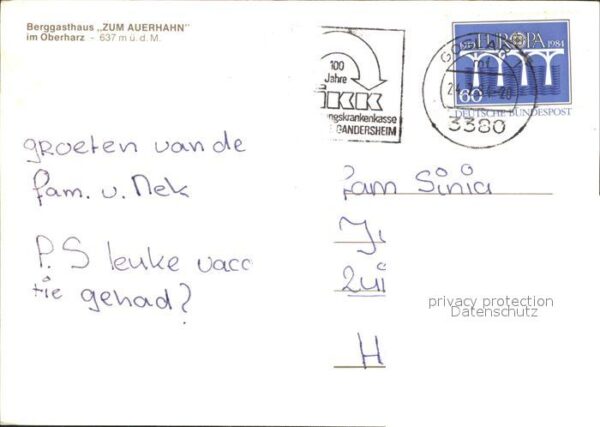 Berggasthaus „ZUM AUERHAHN"
im Oberharz - 637 m ü. d. M.
100
Jahre
IKK
ungskrankenkasse
GANDERSHEIM
EUROPA 1984
60
DEUTSCHE BUNDESPOST
3380
groeten van de
fam. v. Nek
P.S leuke vacc
tie gehad?
Fam Sinia
privacy protection
Datenschutz
H